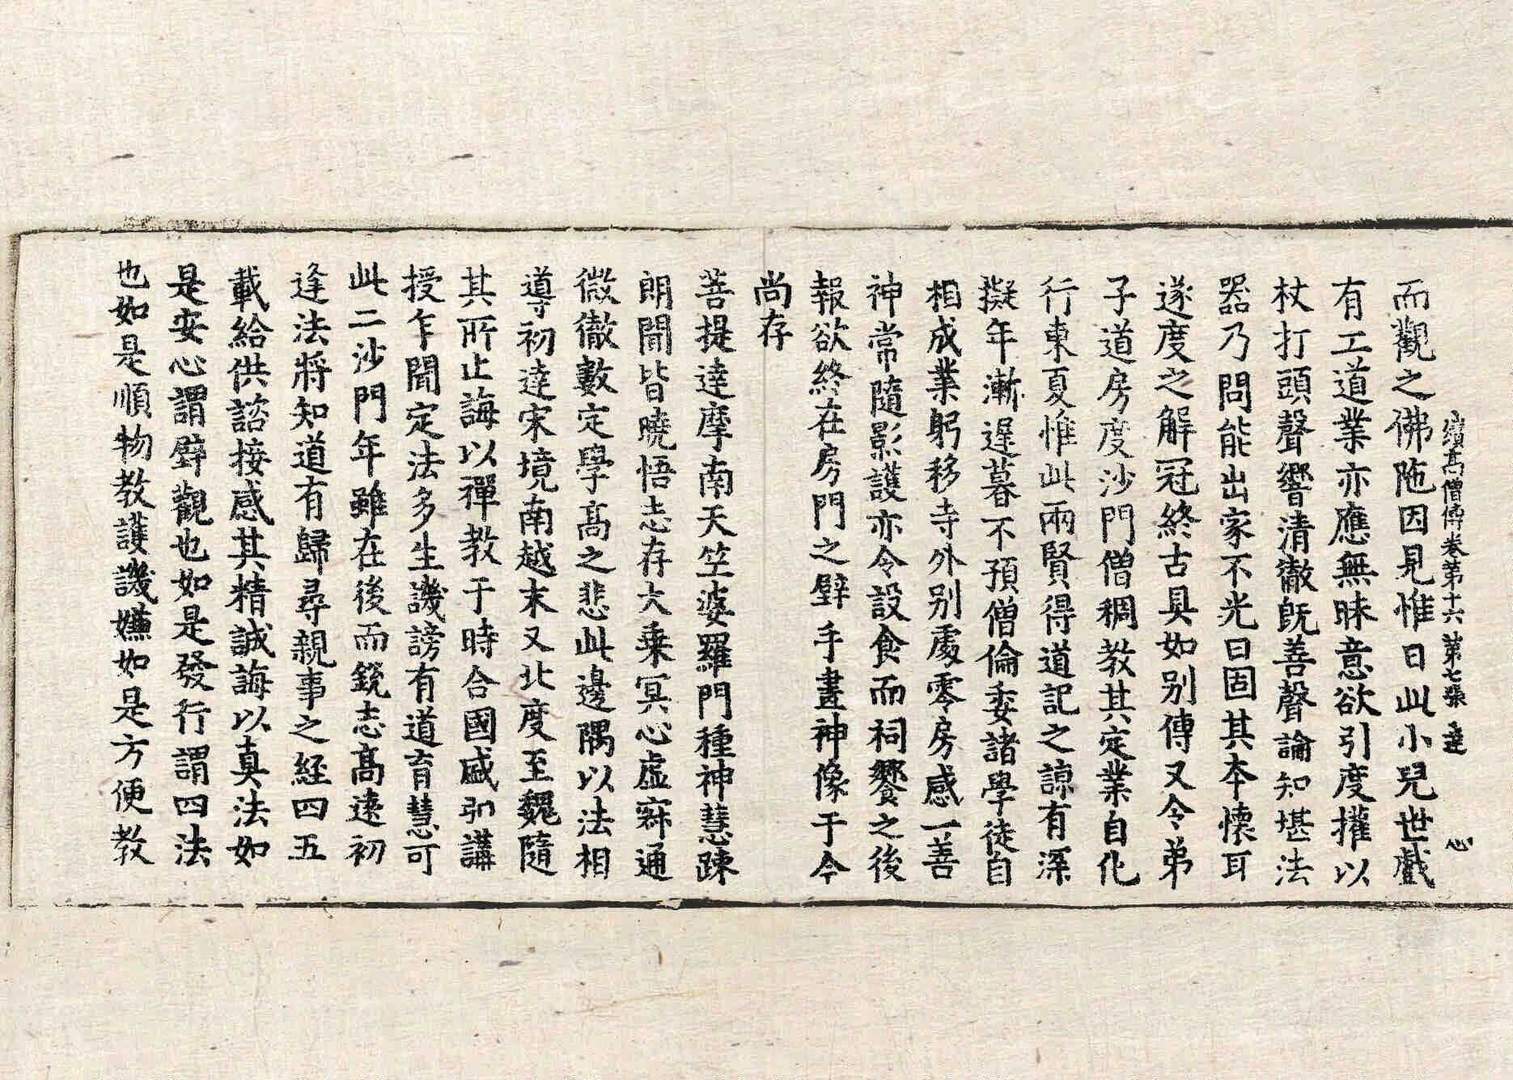 續高僧傳卷第十六 第七張 達 心
而觀之佛陁因見惟曰此小兒世戲
有工道業亦應無昧意欲引度權以
杖打頭聲響清徹旣善聲論知堪法
器乃問能出家不光曰固其本懷耳
遂度之解冠終古具如别傳又令弟
子道房度沙門僧稠教其定業自化
行東夏惟此兩賢得道記之諒有深
擬年漸遲暮不預僧倫委諸學徒自
相成業躬移寺外别處零房感一善
神常隨影護亦令設食而祠饗之後
報欲終在房門之壁手畫神像于今
尚存
菩提達摩南天竺婆羅門種神慧踈
朗聞皆曉悟志存大乗冥心虚寂通
微徹數定學髙之悲此邊隅以法相
導初達宋境南越末又北度至魏隨
其所止誨以禪教于時合國盛弘講
授乍聞定法多生譏謗有道育慧可
此二沙門年雖在後而銳志髙遠初
逢法將知道有歸尋親事之経四五
載給供諮接感其精誠誨以真法如
是安心謂壁觀也如是發行謂四法
也如是順物教護譏嫌如是方便教